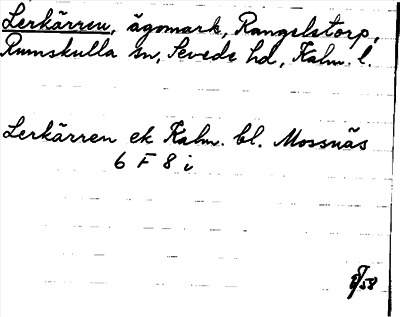 Lerkärren, ägomark, Rangelstorp,
Rumskulla sn, Sevede hd, Kalm. l.
Lerkärren ek Kalm. bl. Mossnäs
6 F 8 i